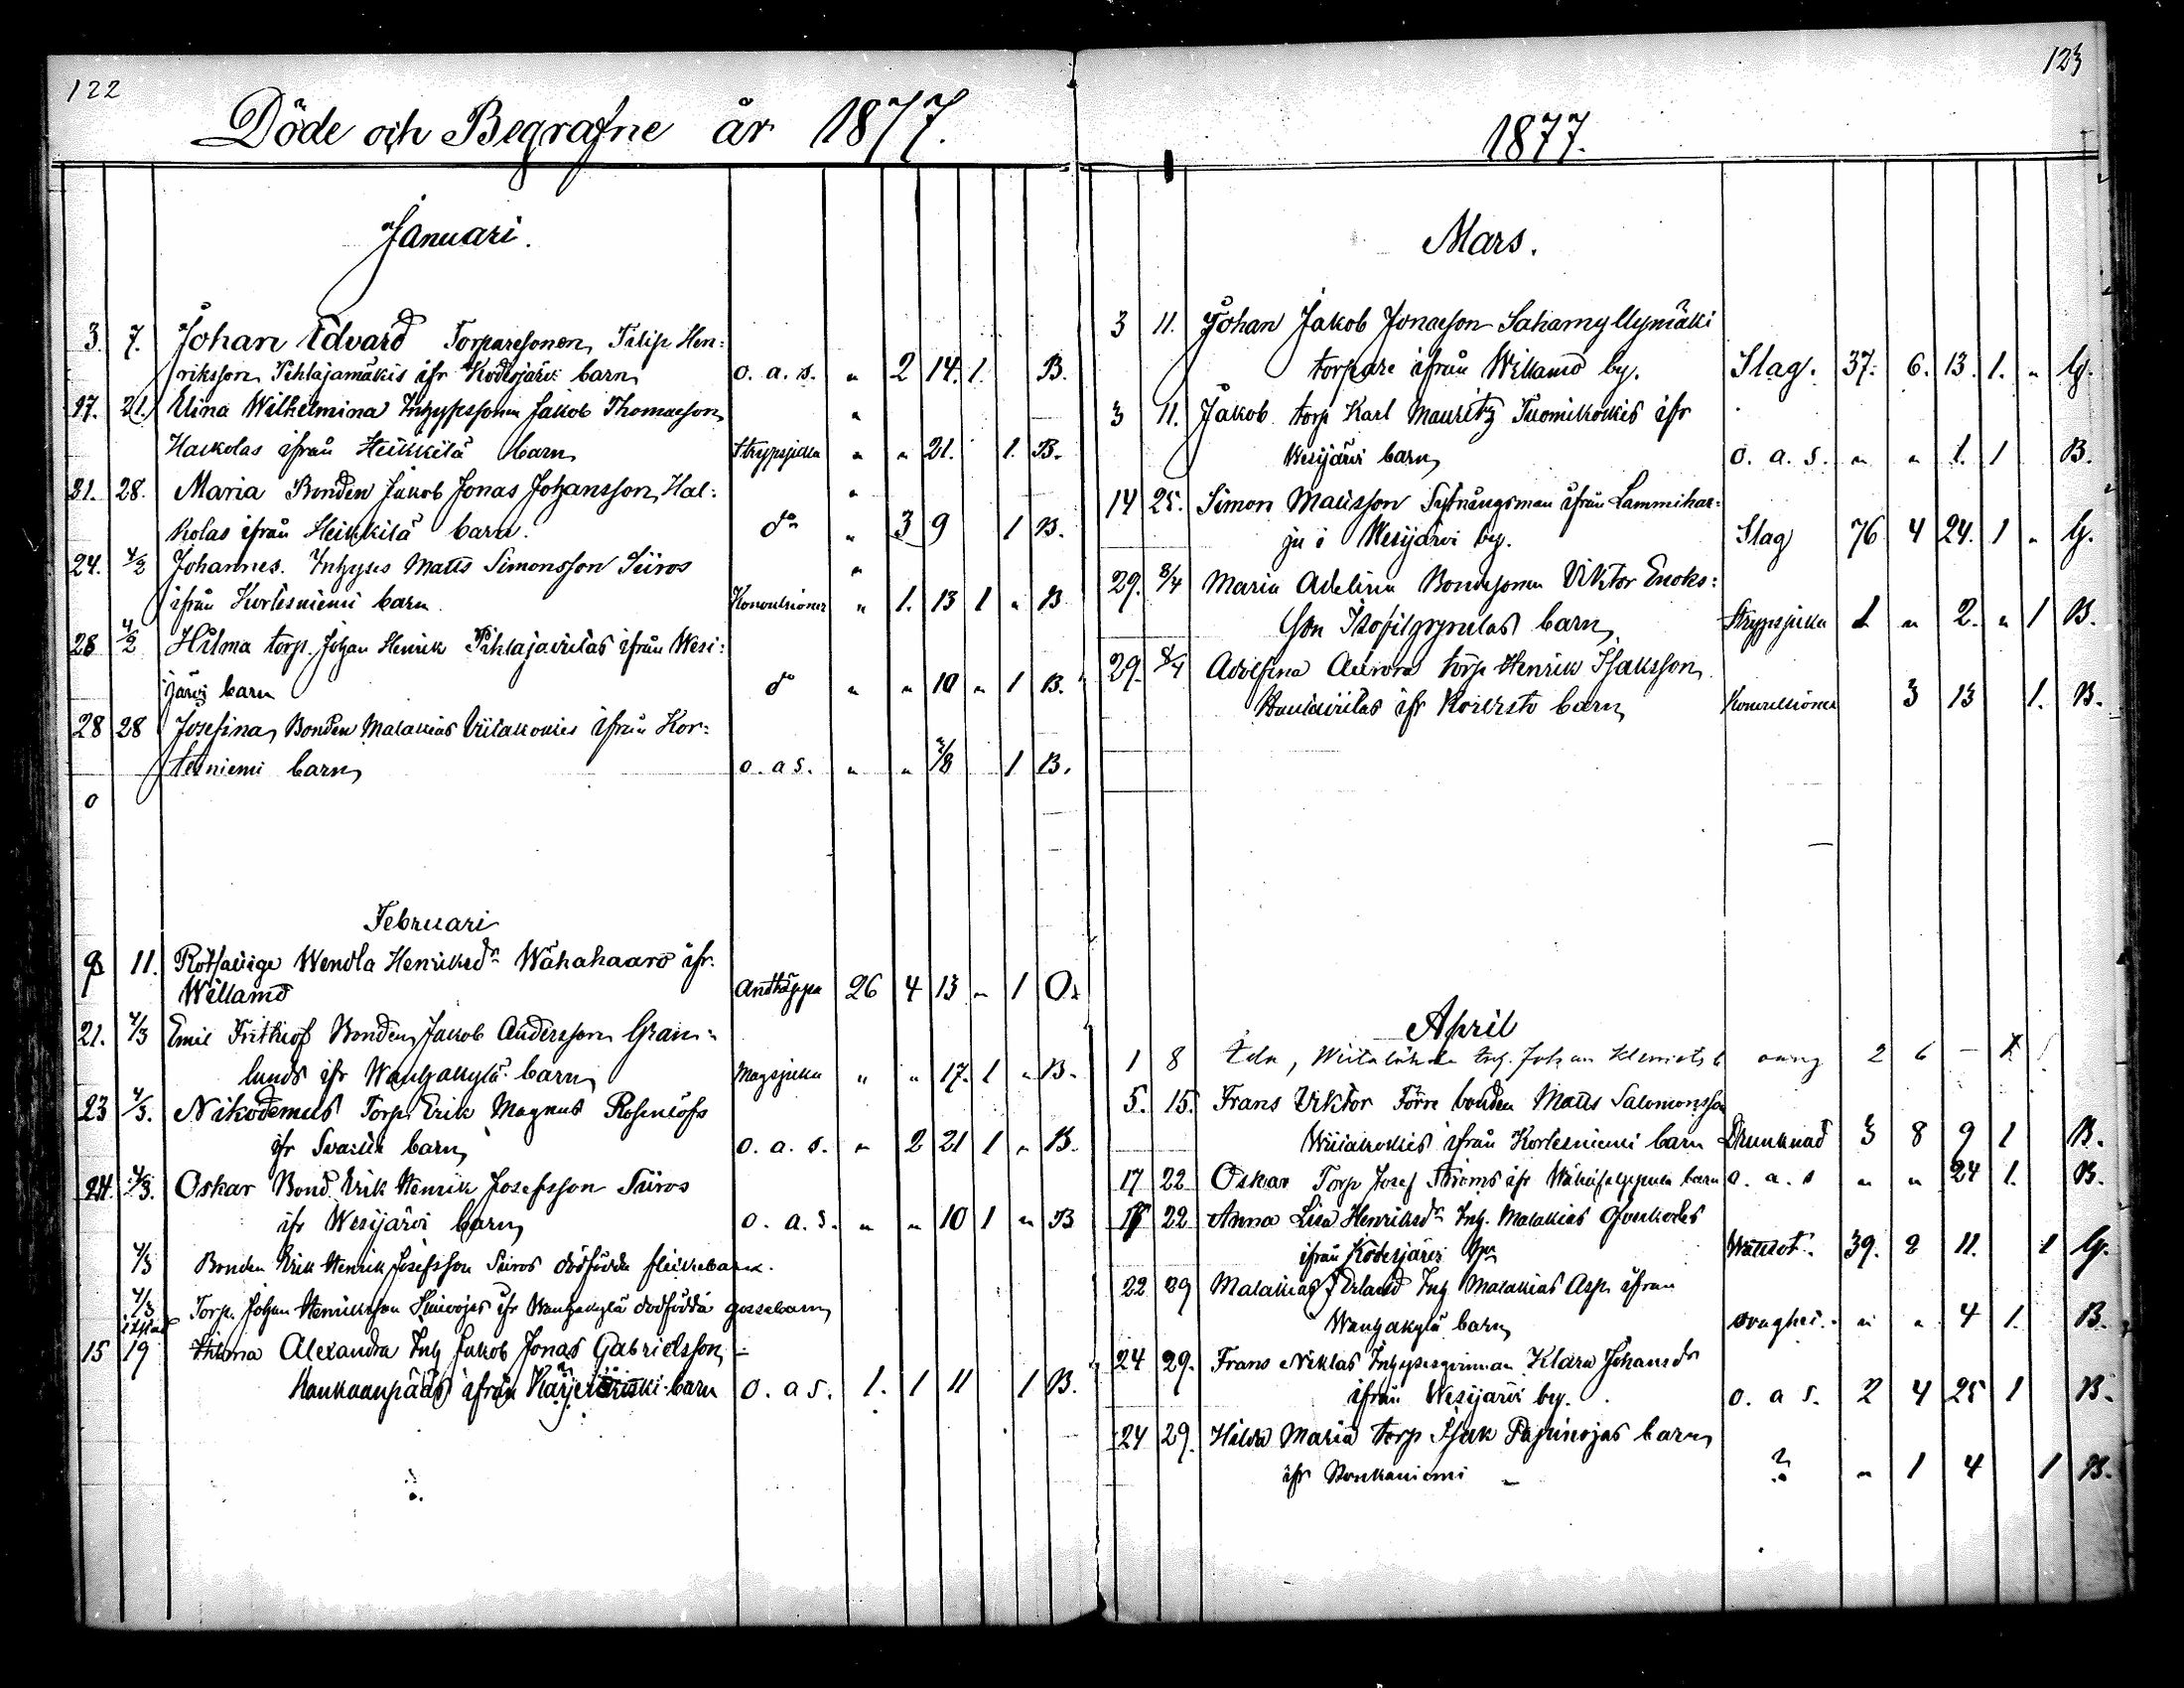 122
Döde och Begrafne år 1877.
Januari.
3. 7. Johan Edvard Torparesonen Filip Hen:
riksson Pihlajamäkis ifr Kodesjärvi barn o. a. s. " 2 14. 1. B.
17. 21. Elina Wilhelmina Inhysessonen Jakob Thomasson "
Halkolas ifrån Heikkilä barn Strypsjuka " " 21. 1. B.
21. 28. Maria Bonden Jakob Jonas Johansson Hal: "
kolas ifrån Heikkilä barn. do " 3 9 1 B.
24. 4/2 Johannes. Inhyses Matts Simonsson Siiros "
ifrån Kortesniemi barn Konvulsioner " 1. 13 1 " B
28 4/2 Hilma torp. Johan Henrik Pihlajaviitas ifrån Wesi:
järvi barn do " " 10 " 1 B.
28 28 Josefina Bonden Malakias Viitakoskis ifrån Kor:
tesniemi barn o. a s. " " 3/8 1 B.
0
Februari
9 11. Rotfattige Wendla Henriksdr Wähahaaro ifr.
Willamo Andtäppa 26 4 13 " 1 O.
21. 4/3 Emil Frithiof Bonden Jakob Andersson Gran:
lunds ifr Wanhakylä barn Magsjuka " " 17. 1 " B.
23 4/3. Nikodemus Torp. Erik Magnus Rosenlöfs
ifr barn o. a. s. " 2 21 1 " B.
24. 4/3. Oskar Bond. Erik Henrik Josefsson Siiros
ifr Wesijärvi barn o. a. s. " " 10 1 " B
4/3 Bonden Erik Henrik Josefsson Siiros dödfödda flickebarn.
4/3 Torp. Johan Henriksson ifr Wanhakylä dödfödda gossebarn
15 19 Hilma Alexandra Inh Jakob Jonas Gabrielsson
Kankaanpääs ifrån barn o. a s. 1. 1 11 1 B.
123
1877.
Mars.
3 11. Johan Jakob Jonasson Sahamyllymäki
torpare ifrån Willamo by. Slag. 37. 6. 13. 1. " G.
3 11. Jakob torp Karl Mauritz Tuomikoskis ifr
Wesijärvi barn o. a. s. " " 1. 1 B.
14 25. Simon Mattsson Sytningsman ifrån Lammihar:
ju i Wesijärvi by. Slag 76 4 24. 1 " G.
29. 8/4 Maria Adelina Bondesonen Viktor Enoks:
son barn Strypsjuka 1 " 2. " 1 B.
29. 8/4 Adolfina Aurora torp Henrik Isaksson
ifr Koiversto barn Konvulsioner 3 13 1. B.
April
1 8 Inh. Johan 2 6 –
5. 15. Frans Viktor Förre bonden Matts Salomonsson
Wiitakoskis ifrån Kortesniemi barn Drunknad 3 8 9 1 B.
17 22 Oskar Torp Josef Ströms ifr barn o. a. s " " 24 1. B.
22 Anna Lisa Henriksdr Inh. Malakias
ifrån Kodesjärvi Wattsot. 39. 2 11. 1 G.
22 29 Malakias Erland Inh Malakias Asp. ifrån
Wanhakylä barn svaghet. " " 4 1. B.
24 29. Frans Niklas Inhysesqvinnan Klara Johansdr
ifrån Wesijärvi by. o. a s. 2 4 25 1 B.
24 29. Hilda Maria torp Isak Pajunojas barn
ifr Konkaniemi ? " 1 4 1 B.